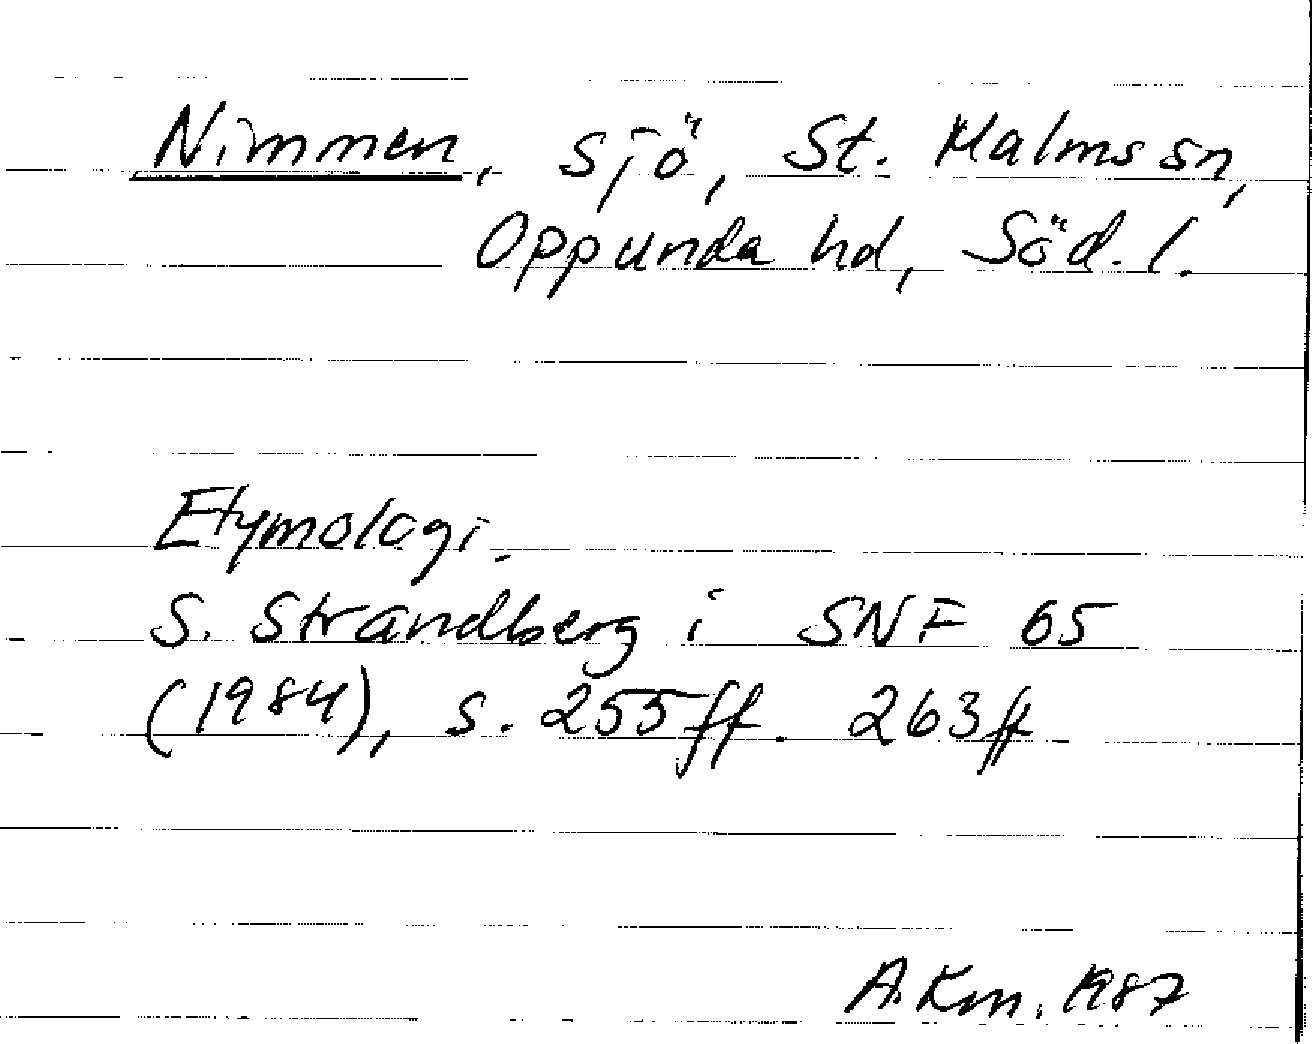 Nimmen, sjö, St. Malms sn,
Oppunda hd, Söd. l.
Etymologi.
S. Strandberg i SNF 65
(1984), s. 255ff. 263ff
A. Km. 1987